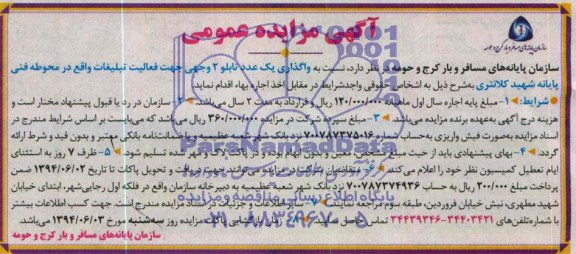 آگهی مزایده عمومی
سازمان پایانه‌های مسافر و بار کرج و حومه
سازمان پایانه‌های مسافر و بار کرج و حومه در نظر دارد، نسبت به واگذاری یک عدد تابلو ۲ وجهی جهت فعالیت تبلیغات واقع در محوطه فنی
پایانه شهید کلانتری به‌شرح ذیل به اشخاص حقوقی واجدشرایط در مقابل اخذ اجاره بهاء اقدام نماید.
شرایط: ۱- مبلغ پایه اجاره سال اول ماهیانه ۱۲۰/۰۰۰/۰۰۰ ریال و قرارداد به مدت ۲ سال می‌باشد. ۲- سازمان در رد یا قبول پیشنهاد مختار است و
هزینه درج آگهی به‌عهده برنده مزایده می‌باشد. ۳- مبلغ سپرده شرکت در مزایده ۳۶۰/۰۰۰/۰۰۰ ریال می‌باشد که می‌بایست بر اساس شرایط مندرج در
اسناد مزایده به‌صورت فیش واریزی به‌حساب شماره ۷۰۰۷۸۷۳۷۵۰۱۶ نزد بانک شهر شعبه عظیمیه و یا ضمانتنامه بانکی معتبر و بدون قید و شرط ارائه
گردد. ۴- بهای پیشنهادی باید از حیث مبلغ معین و بدون ابهام بوده و در پاکت لاک و مهر شده تسلیم شود. ۵- ظرف ۷ روز به استثنای
ایام تعطیل کمیسیون نظر خود را اعلام می‌کند. ۶- متقاضیان شرکت در مزایده می‌توانند جهت دریافت و تحویل پاکات تا تاریخ ۱۳۹۴/۰۶/۰۲ ضمن
پرداخت مبلغ ۲۰۰/۰۰۰ ریال به حساب ۷۰۰۷۸۷۳۷۴۹۳۶ نزد بانک شهر شعبه عظیمیه به دبیرخانه سازمان واقع در فلکه اول رجایی‌شهر، ابتدای خیابان
شهید مطهری، نبش خیابان فروردین، طبقه سوم مراجعه نمایند. ۷- سایر اطلاعات و جزئیات در اسناد مزایده مندرج است. جهت کسب اطلاعات بیشتر
با شماره‌تلفن‌های ۳۴۴۰۳۴۲۱-۳۴۴۳۹۳۴۶ تماس حاصل بازگشایی پاکات مزایده روز سه‌شنبه مورخ ۱۳۹۴/۰۶/۰۳ می‌باشد.
سازمان پایانه‌های مسافر و بار کرج و حومه
ParsNamadData
پایگاه اطلاع رسانی مناقصه و مزایده
۰۲۱-۸۸۳۴۹۶۷۰-۵